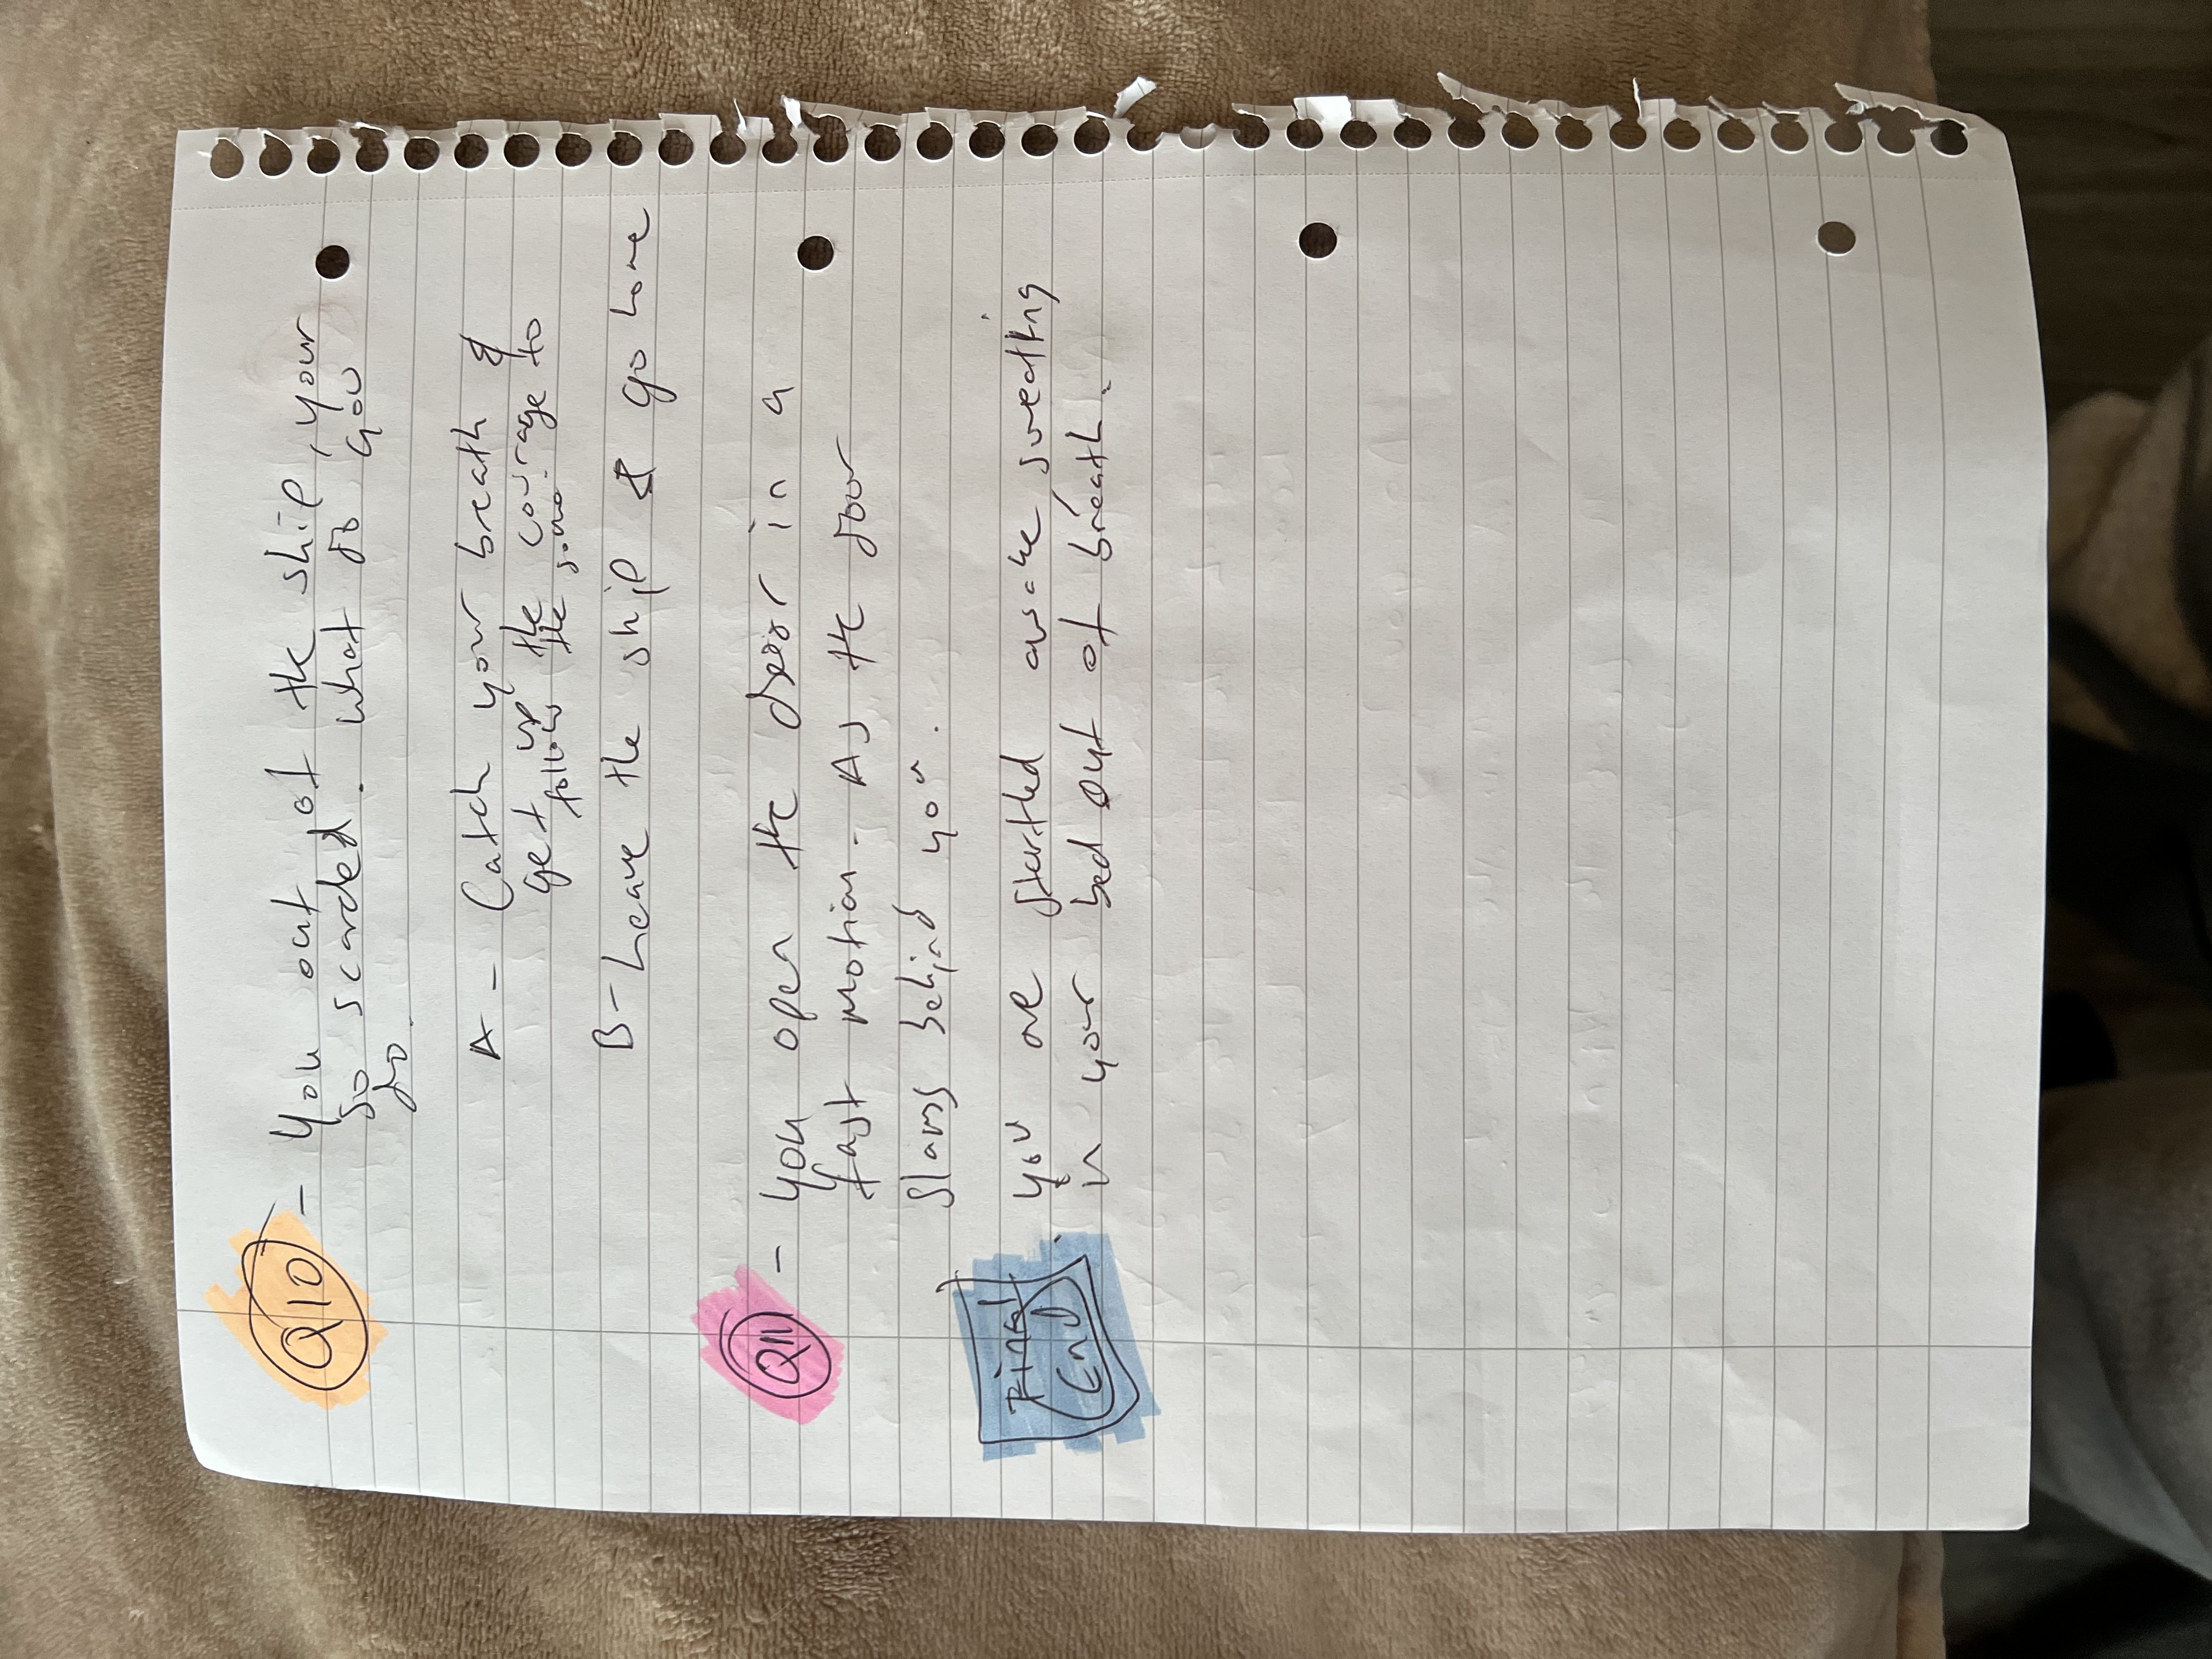 Q10 - You out of the ship, your
so scarded. What do you
do.
A - Catch your breath &
get up the courage to
follow the
B - Leave the ship & go home
Q11 - you open the door in a
fast motion. As the door
slams behind you.
Final
End
. you are startled awake sweating
in your bed out of breath.